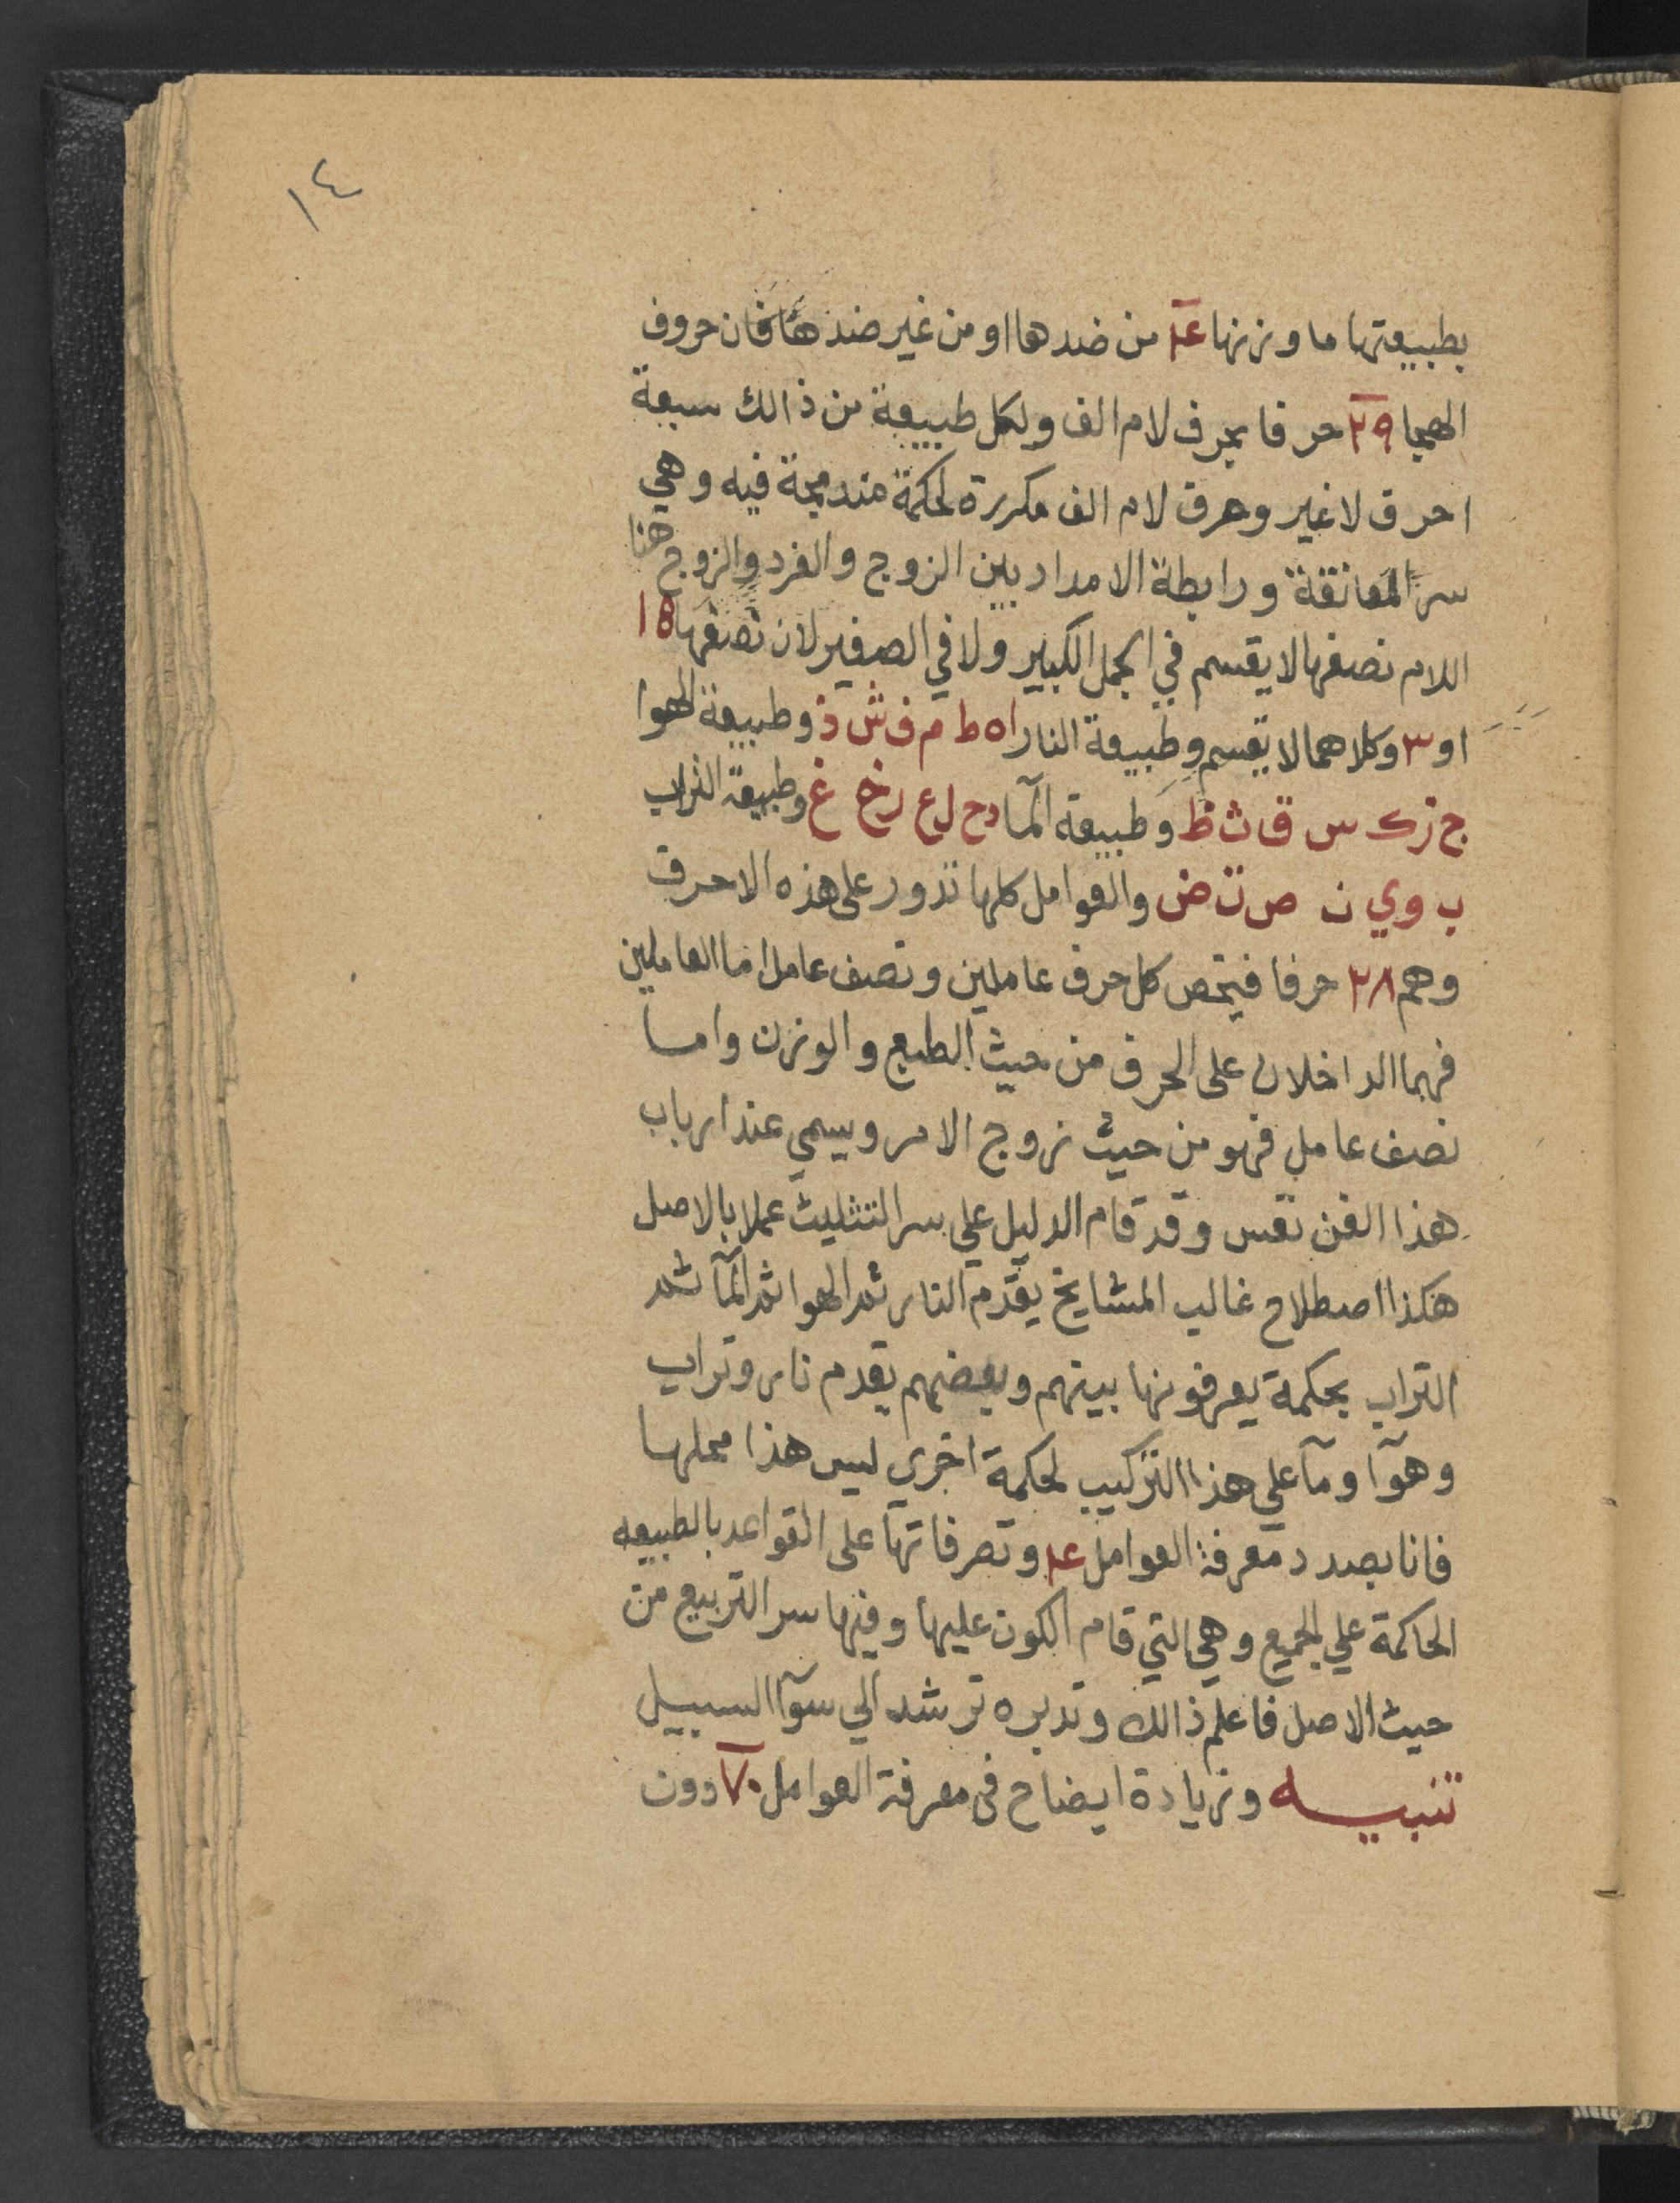 ١٤
بطبيعتها ما وزنها ٤ من ضدها او من غير ضدها فان حروف
الهجا ٢٩ حرفا بحرف لام الف ولكل طبيعة من ذالك سبعة
احرف لا غير وحرف لام الف مكررة لحكمة مندمجة فيه وهي
سر المعانقة ورابطة الامداد بين الزوج والفرد والزوج هنا
اللام نصفها لا يقسم في الجمل الكبير ولا في الصغير لان نصفها ١٥
او ٣ وكلاهما لا يقسم وطبيعة النار ا ه ط م ف ش ذ وطبيعة الهوا
ج ز ك س ق ث ظ وطبيعة المآ د ح ل ع ر خ غ وطبيعة التراب
ب و ي ن ص ت ض والعوامل كلها تدور على هذه الاحرف
وهم ٢٨ حرفا فيخص كل حرف عاملين ونصف عامل اما العاملين
فهما الداخلان على الحرف من حيث الطبع والوزن واما
نصف عامل فهو من حيث زوج الامر ويسمي عند ارباب
هذا الفن نفس وقد قام الدليل علي سر التثليث عملا بالاصل
هكذا اصطلاح غالب المشايخ يقدم النار ثم الهوا ثم المآ ثم
التراب بحكمة يعرفونها بينهم وبعضهم يقدم نار وتراب
وهوآ ومآ علي هذا التركيب لحكمة اخري ليس هذا محلها
فانا بصدد معرفة العوامل ٤ وتصرفاتها على القواعد بالطبيعه
الحاكمة علي الجميع وهي التي قام الكون عليها وفيها سر التربيع من
حيث الاصل فاعلم ذالك وتدبره ترشد الي سوآ السبيل
تنبيه وزيادة ايضاح فى معرفة العوامل ٧٠ دون